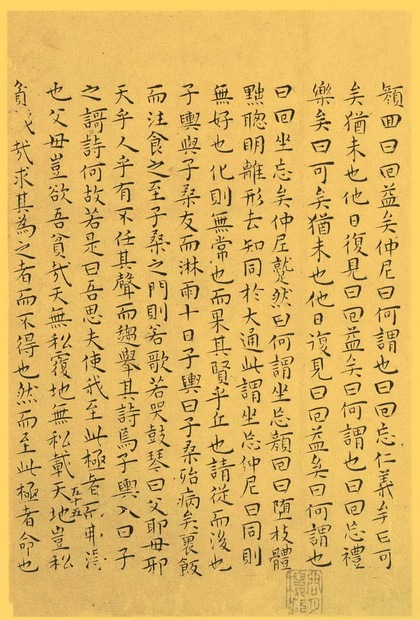 顔回曰回益矣仲尼曰何謂也曰回忘仁義矣曰可
矣猶未也他日復見曰回益矣曰何謂也曰回忘禮
樂矣曰可矣猶未也他日復見曰回益矣曰何謂也
曰回坐忘矣仲尼蹵然曰何謂坐忘顔回曰堕枝體
黜聰明離形去知同於大通此謂坐忘仲尼曰同則
無好也化則無常也而果其賢乎丘也請從而後也
子輿與子桑友而淋雨十日子輿曰子桑殆病矣裹飯
而往食之至子桑之門則若歌若哭鼓琴曰父耶母邪
天乎人乎有不任其聲而趨舉其詩焉子輿入曰子
之謌詩何故若是曰吾思夫使我至此極者而弗得
五十五
也父母豈欲吾貧哉天無私覆地無私載天地豈私
貧我哉求其為之者而不得也然而至此極者命也